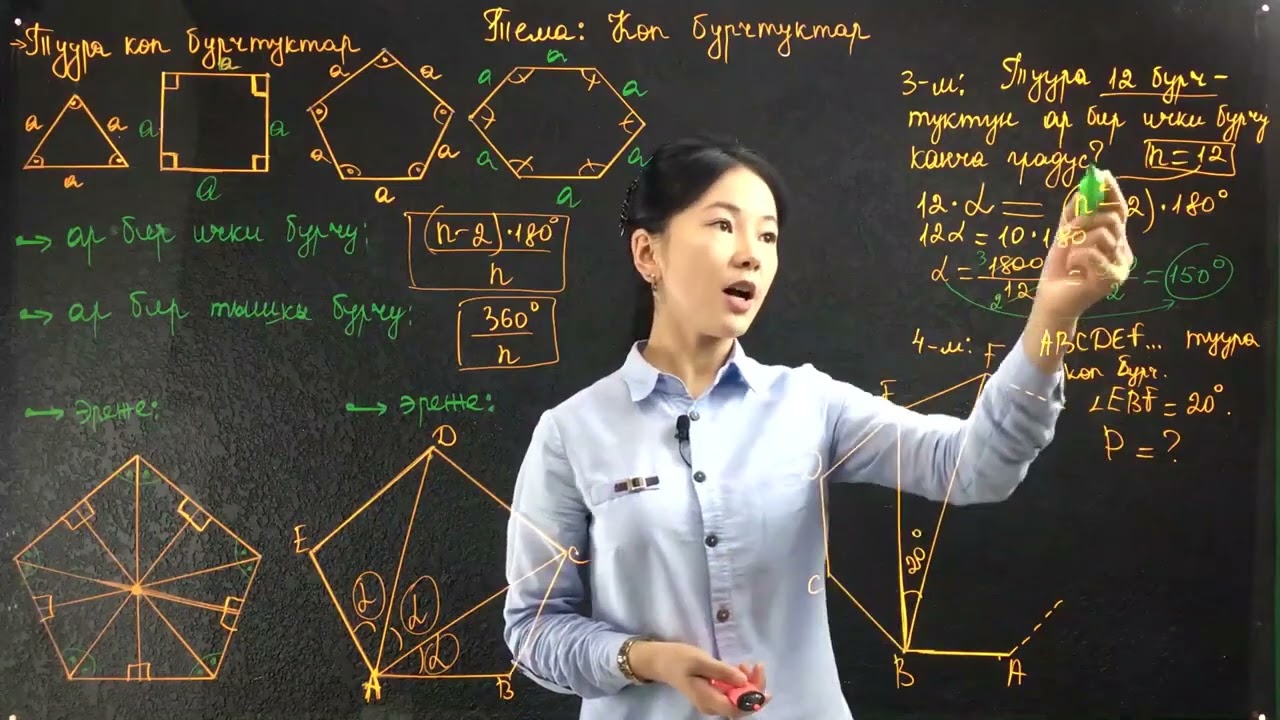 Тема: Көп бурчтуктар
→ Туура көп бурчтуктар
a a a
a a a a
a a a a a
a a a a a a
→ ар бир ички бурчу:
(n-2)·180°
n
→ ар бир тышкы бурчу:
360°
n
→ Эреже:
→ Эреже:
D
E
C
α α α
A
B
3-м: Туура 12 бурч-
туктун ар бир ички бурчу
канча градус? n=12
12·α = (n-2)·180°
12α = 10·180
α = 1800 = = 150°
12 2
3
2
4-м: ABCDEF... туура
көп бурч.
∠EBF = 20°.
P = ?
F
E
D
C
20°
B
A